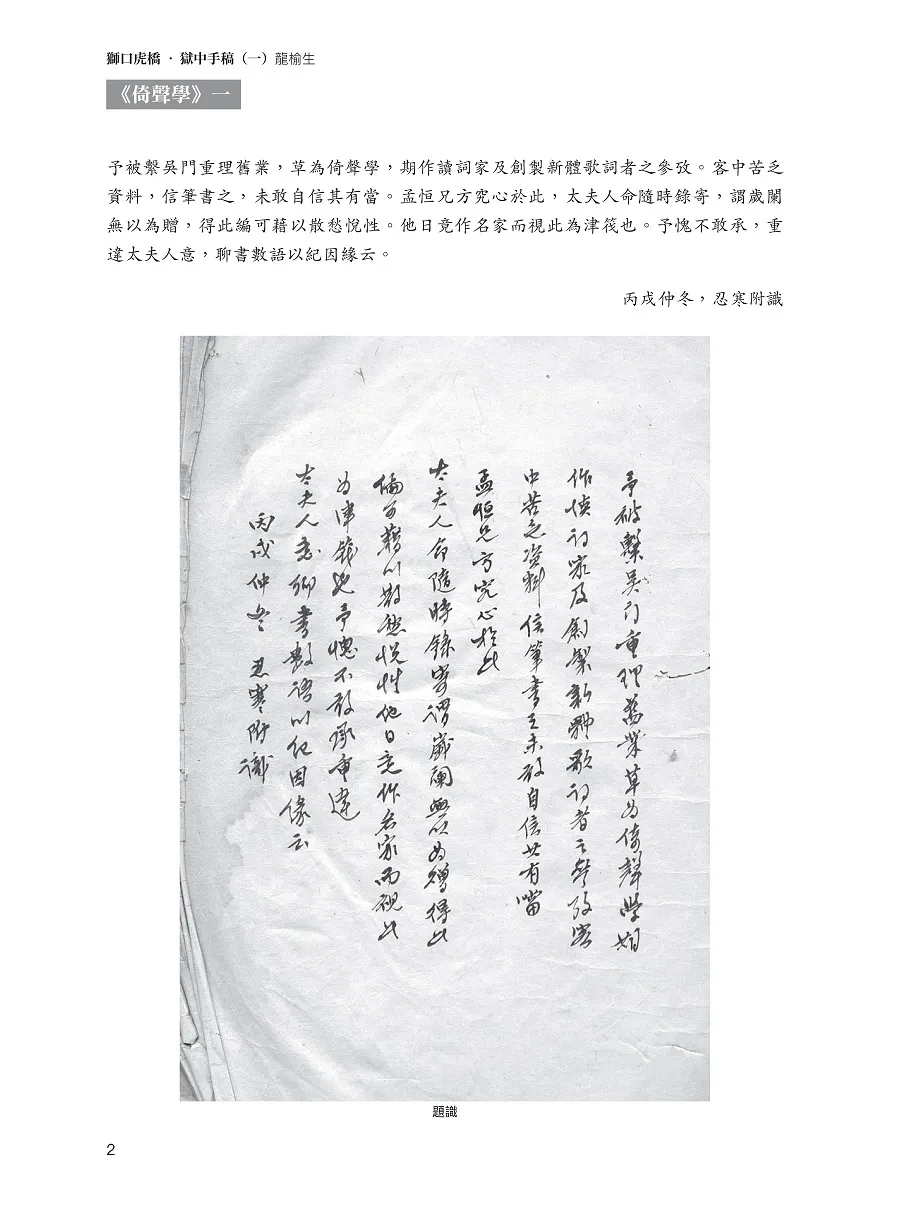 獅口虎橋 · 獄中手稿（一）龍榆生
《倚聲學》一
予被繫吳門重理舊業，草為倚聲學，期作讀詞家及創製新體歌詞者之參攷。客中苦乏
資料，信筆書之，未敢自信其有當。孟恒兄方究心於此，太夫人命隨時錄寄，謂歲闌
無以為贈，得此編可藉以散愁悅性。他日竟作名家而視此為津筏也。予愧不敢承，重
違太夫人意，聊書數語以紀因緣云。
丙戌仲冬，忍寒附識
予被繫吳門重理舊業草為倚聲學期
作讀詞家及創製新體歌詞者之參攷客
中苦乏資料信筆書之未敢自信其有當
孟恒兄方究心於此
太夫人命隨時錄寄謂歲闌無以為贈得此
編可藉以散愁悅性他日竟作名家而視此
為津筏也予愧不敢承重違
太夫人意聊書數語以紀因緣云
丙戌仲冬 忍寒附識
題識
2